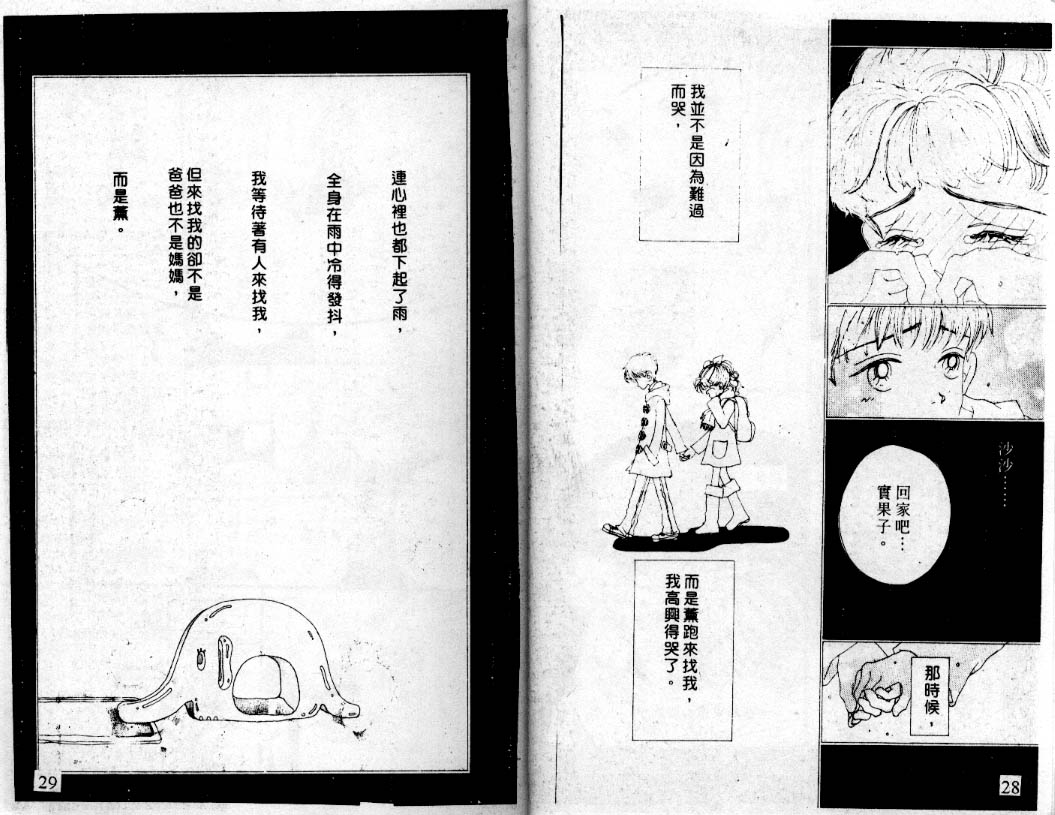 沙沙……
回家吧…
實果子。
那時候，
我並不是因為難過
而哭，
而是薰跑來找我，
我高興得哭了。
28
連心裡也都下起了雨，
全身在雨中冷得發抖，
我等待著有人來找我，
但來找我的卻不是
爸爸也不是媽媽，
而是薰。
29